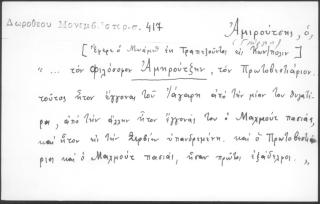 Δωροθέου Μονεμβ. ἱστορ. σ. 417
Ἀμιρούτσης, ὁ,
[Ἔφερε ὁ Μωάμεθ ἐκ Τραπεζοῦντος εἰς Κων/πολιν]
"... τὸν φιλόσοφον Ἀμηρούτζην, τὸν Πρωτοβεστιάριον.
τοῦτος ἦτον ἔγγονας τοῦ Ἰάγαρη ἀπὸ τὴν μίαν του θυγατέ-
ρα, ἀπὸ τὴν ἄλλην ἦτον ἔγγονάς του ὁ Μαχμοὺτ πασιάς,
καὶ ἦτον εἰς τὴν Σερβίαν ὑπανδρεμένη. καὶ ὁ Πρωτοβεστιά-
ριος καὶ ὁ Μαχμοὺτ πασιάς, ἦσαν πρῶτοι ἐξάδελφοι. "